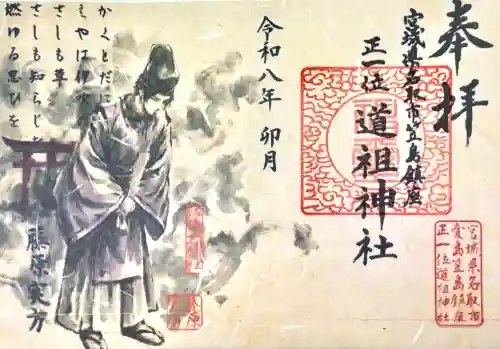 奉拝
宮城県名取市笠島鎮座
正一位
道祖神社
令和八年 卯月
かくとだに
えやは伊吹
さしも草
さしも知らじな
燃ゆる思ひを
藤原実方
宮城県名取市
愛島笠島鎮座
正一位道祖神社